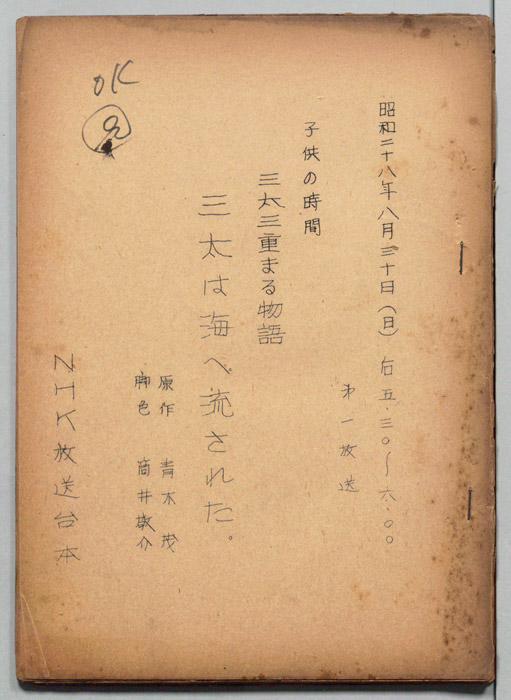 昭和二十八年八月三十日(日) 后五.三〇〜六.〇〇
第一放送
子供の時間
三太三重まる物語
三太は海へ流された。
原作 青木茂
脚色 筒井敬介
NHK放送台本
OK